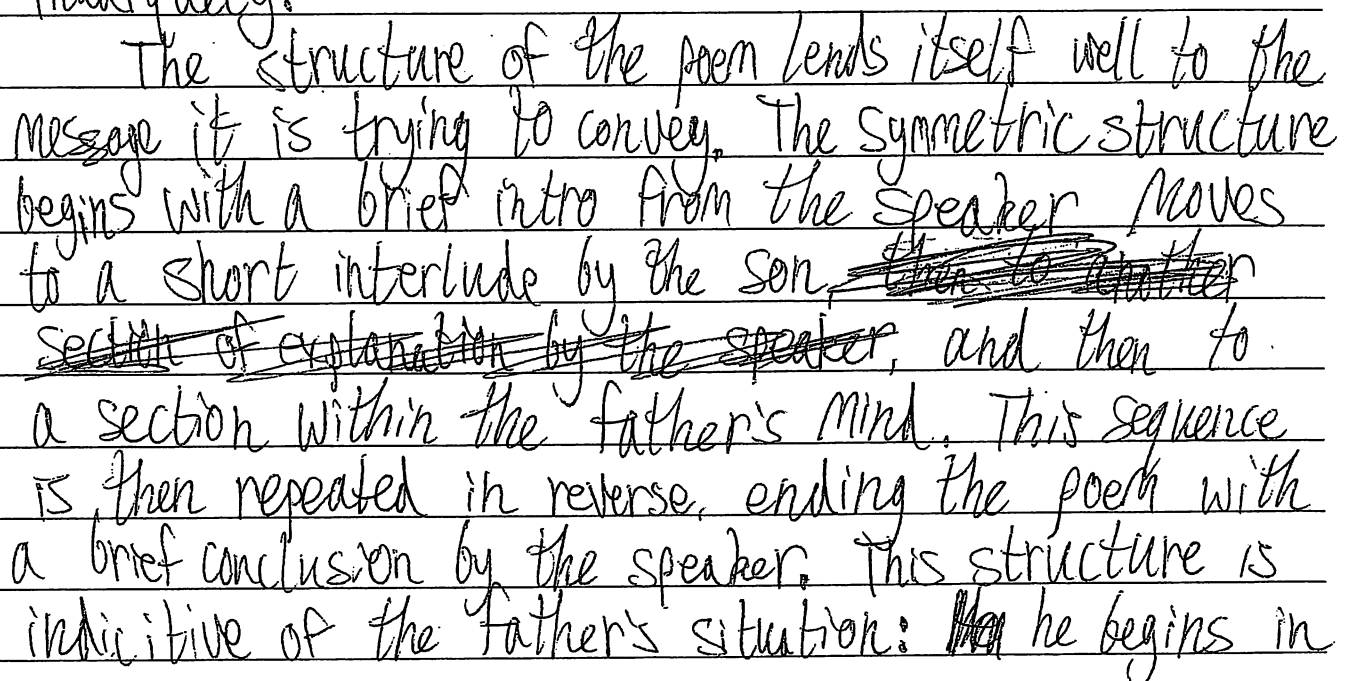 The structure of the poem lends itself well to the
message it is trying to convey. The symmetric structure
begins with a brief intro from the speaker moves
to a short interlude by the son, then to another
section of explanation by the speaker, and then to
a section within the father's mind. This sequence
is then repeated in reverse, ending the poem with
a brief conclusion by the speaker. This structure is
indicitive of the father's situation: he begins in